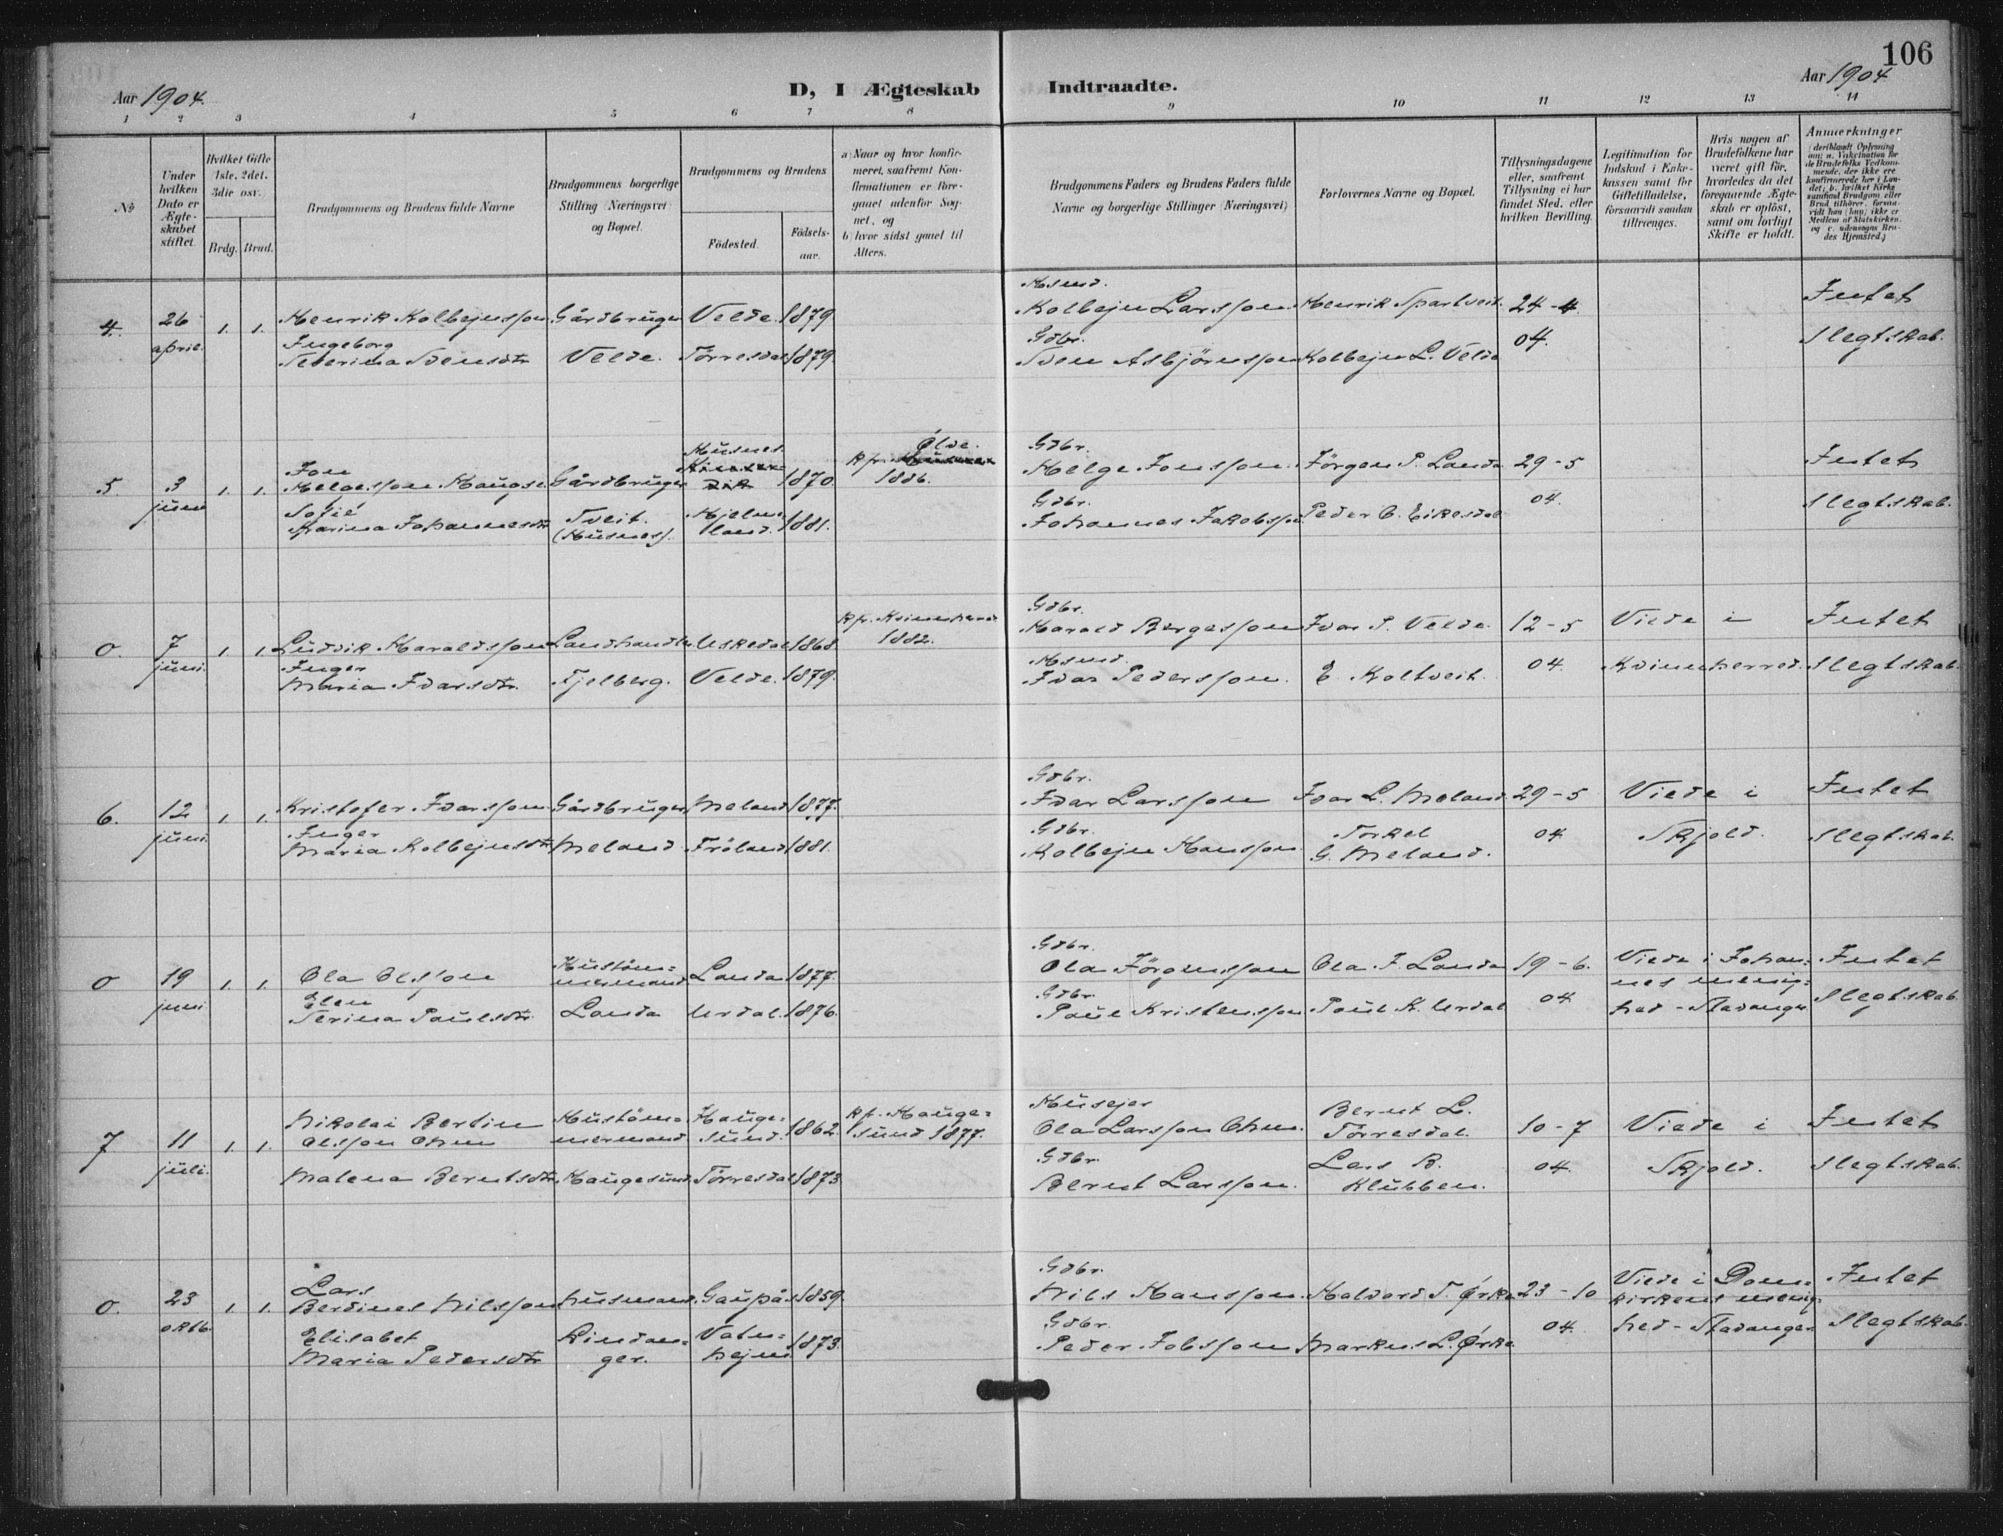 106
Aar 1904.
D, I Ægteskab Indtraadte.
Aar 1904
1 2 3 4 5 6 7 8 9 10 11 12 13 14
No
Under hvilken Dato er Ægteskabet stiftet.
Hvilket Gifte (1ste, 2det, 3die osv.)
Brdg. Brud.
Brudgommens og Brudens fulde Navne
Brudgommens borgerlige Stilling (Næringsvei) og Bopæl.
Brudgommens og Brudens
Födested.
Födsels-aar.
a) Naar og hvor konfirmeret, saafremt Konfirmationen er foregaaet udenfor Sognet, og
b) hvor sidst gaaet til Alters.
Brudgommens Faders og Brudens Faders fulde Navne og borgerlige Stillinger (Næringsvei)
Forlovernes Navne og Bopæl.
Tillysningsdagene eller, saafremt Tillysning ei har fundet Sted, efter hvilken Bevilling.
Legitimation for Indskud i Enkekassen samt for Giftetilladelse, forsaavidt saadan tiltrænges.
Hvis nogen af Brudefolkene har været gift för, hvorledes da det foregaaende Ægteskab er oplöst, samt om lovligt Skifte er holdt.
Anmerkninger
4. 26 april. 1. 1.
Henrik Kolbejnsson
Ingeborg
Severina Svensdtr
Gårdbruger
Velde.
Velde. 1879
Törresdal 1879
Husmd.
Kolbejn Larsson
Gdbr.
Sven Asbjörnsson
Henrik Spartveit.
Kolbejn L. Velde
24-4
04.
Intet
Slegtskab.
5 3 juni 1. 1.
Jon
Helgesson Haugse
Sofie
Karina Johannesdtr
Gårdbruger
Tveit.
(Husnes).
Husnes
1870.
Hjelmeland. 1881.
Kfr. Ölve.
1886.
Gdbr.
Helge Jonsson.
Gdbr.
Johannes Jakobsson
Jörgen P. Landa
Peder C. Eikesdal
29-5
04.
Intet
Slegtskab.
0. 7 juni. 1. 1.
Ludvik Haraldsson
Inger
Maria Ivarsdtr.
Landhandler
Fjelberg.
Uskedal 1868
Velde. 1879.
Kfr. Kvinnherred
1882.
Gdbr.
Harald Börgesson
Husmd.
Ivar Pedersson.
Ivar P. Velde.
E. Koltveit.
12-5
04.
Viede i
Kvinnherred.
Intet
Slegtskab.
6. 12 juni. 1. 1.
Kristofer Ivarsson.
Inger
Maria Kolbejnsdtr
Gårdbruger
Meland
Meland 1877.
Fröland 1881.
Gdbr.
Ivar Larsson
Gdbr.
Kolbejn Hansson.
Ivar L. Meland
Torkel
G. Meland.
29-5
04
Viede i
Skjold.
Intet
Slegtskab.
0 19 juni 1. 1.
Ola Olsson
Elen
Serina Paulsdtr.
Hustömmermand
Landa
Landa 1877.
Urdal. 1876.
Gdbr.
Ola Jörgensson
Gdbr.
Paul Kristensson
Ola J. Landa
Paul K. Urdal
19-6.
04.
Viede i Johannes menighed - Stavanger
Intet
Slegtskab.
7 11 juli. 1. 1.
Nikolai Bertin
Olsson Ohm
Malena Berntsdtr.
Hustömmermand.
Haugesund.
Haugesund. 1862.
Törresdal 1873.
Kfr. Haugesund 1877.
Husejer
Ola Larsson Ohm.
Gdbr.
Bernt Larsson.
Bernt L.
Törresdal.
Lars B.
Klubben.
10-7
04.
Viede i
Skjold.
Intet
Slegtskab.
0. 23 oktb. 1. 1.
Lars
Berdines Nilsson
Elisabet
Maria Pedersdtr
Husmand.
Lindanger.
Gaupås 1859.
Vatnhejm 1873.
Gdbr.
Nils Hansson.
Gdbr.
Peder Jobsson
Halvard T. Örke
Markus L. Örke.
23-10
04.
Viede i Domkirkens menighed - Stavanger
Intet
Slegtskab.